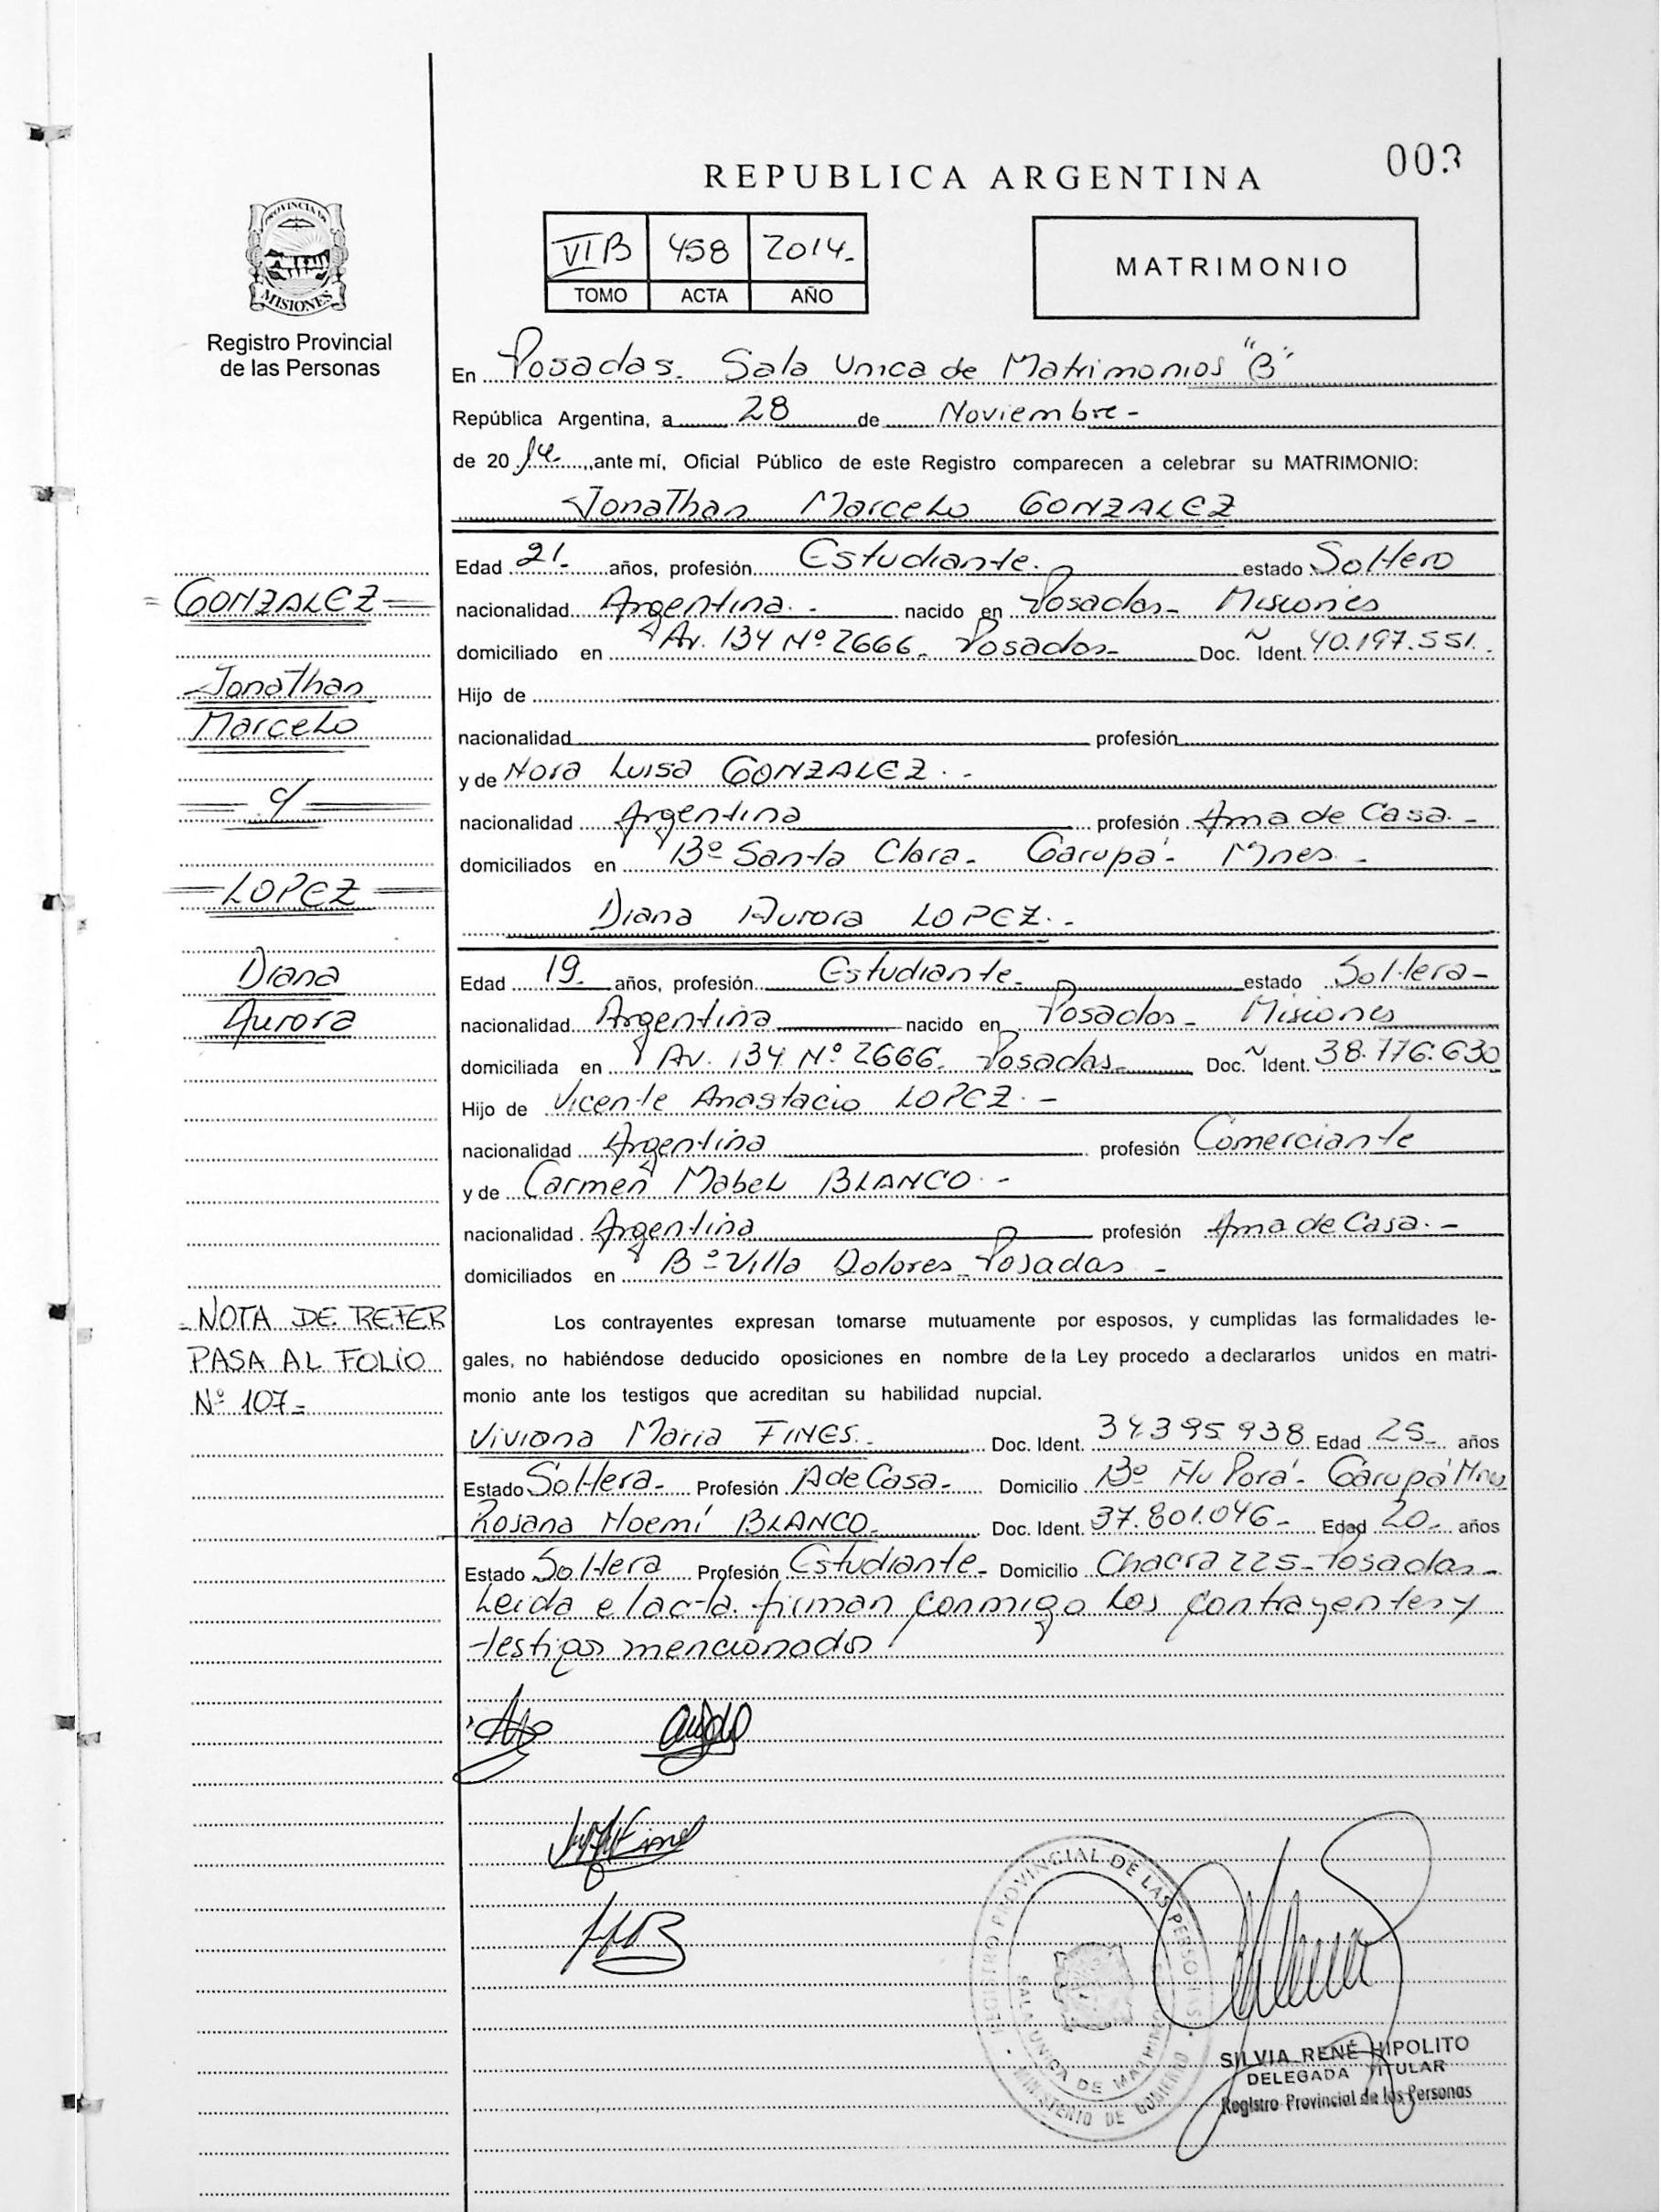 003
REPUBLICA ARGENTINA
PROVINCIA DE
MISIONES
Registro Provincial
de las Personas
VI B 458 2014.-
TOMO ACTA AÑO
MATRIMONIO
En Posadas. Sala Unica de Matrimonios "B"
República Argentina, a 28 de Noviembre -
de 20 14. ante mí, Oficial Público de este Registro comparecen a celebrar su MATRIMONIO:
Jonathan Marcelo GONZALEZ
Edad 21.- años, profesión Estudiante. estado Soltero
= GONZALEZ =
nacionalidad Argentina. - nacido en Posadas - Misiones
domiciliado en Av. 134 Nº 2666. Posadas - Doc. Ident. 40.197.551.
Jonathan
Hijo de
Marcelo
nacionalidad profesión
y de Nora Luisa GONZALEZ. -
c/
nacionalidad Argentina profesión Ama de Casa. -
domiciliados en Bº Santa Clara - Garupá - Mnes -
= LOPEZ =
Diana Aurora LOPEZ. -
Diana
Edad 19. años, profesión Estudiante - estado Soltera -
Aurora
nacionalidad Argentina nacido en Posadas - Misiones
domiciliada en Av. 134 Nº 2666. Posadas - Doc. Ident. 38.776.630
Hijo de Vicente Anastacio LOPEZ. -
nacionalidad Argentina profesión Comerciante
y de Carmen Mabel BLANCO. -
nacionalidad Argentina profesión Ama de Casa. -
domiciliados en Bº Villa Dolores - Posadas -
- NOTA DE REFER
PASA AL FOLIO
Nº 107 -
Los contrayentes expresan tomarse mutuamente por esposos, y cumplidas las formalidades le-
gales, no habiéndose deducido oposiciones en nombre de la Ley procedo a declararlos unidos en matri-
monio ante los testigos que acreditan su habilidad nupcial.
Viviana Maria FINES. - Doc. Ident. 34.395.938 Edad 25 - años
Estado Soltera - Profesión A de Casa - Domicilio Bº Ñu Porá - Garupá Mnes
Rosana Noemí BLANCO - Doc. Ident. 37.801.046 - Edad 20 - años
Estado Soltera Profesión Estudiante - Domicilio Chacra 225 - Posadas -
Leida el acta. firman conmigo los contrayentes y
testigos mencionados
REGISTRO PROVINCIAL DE LAS PERSONAS
SALA UNICA DE MATRIMONIOS
MINISTERIO DE GOBIERNO
SILVIA RENÉ HIPOLITO
DELEGADA TITULAR
Registro Provincial de las Personas